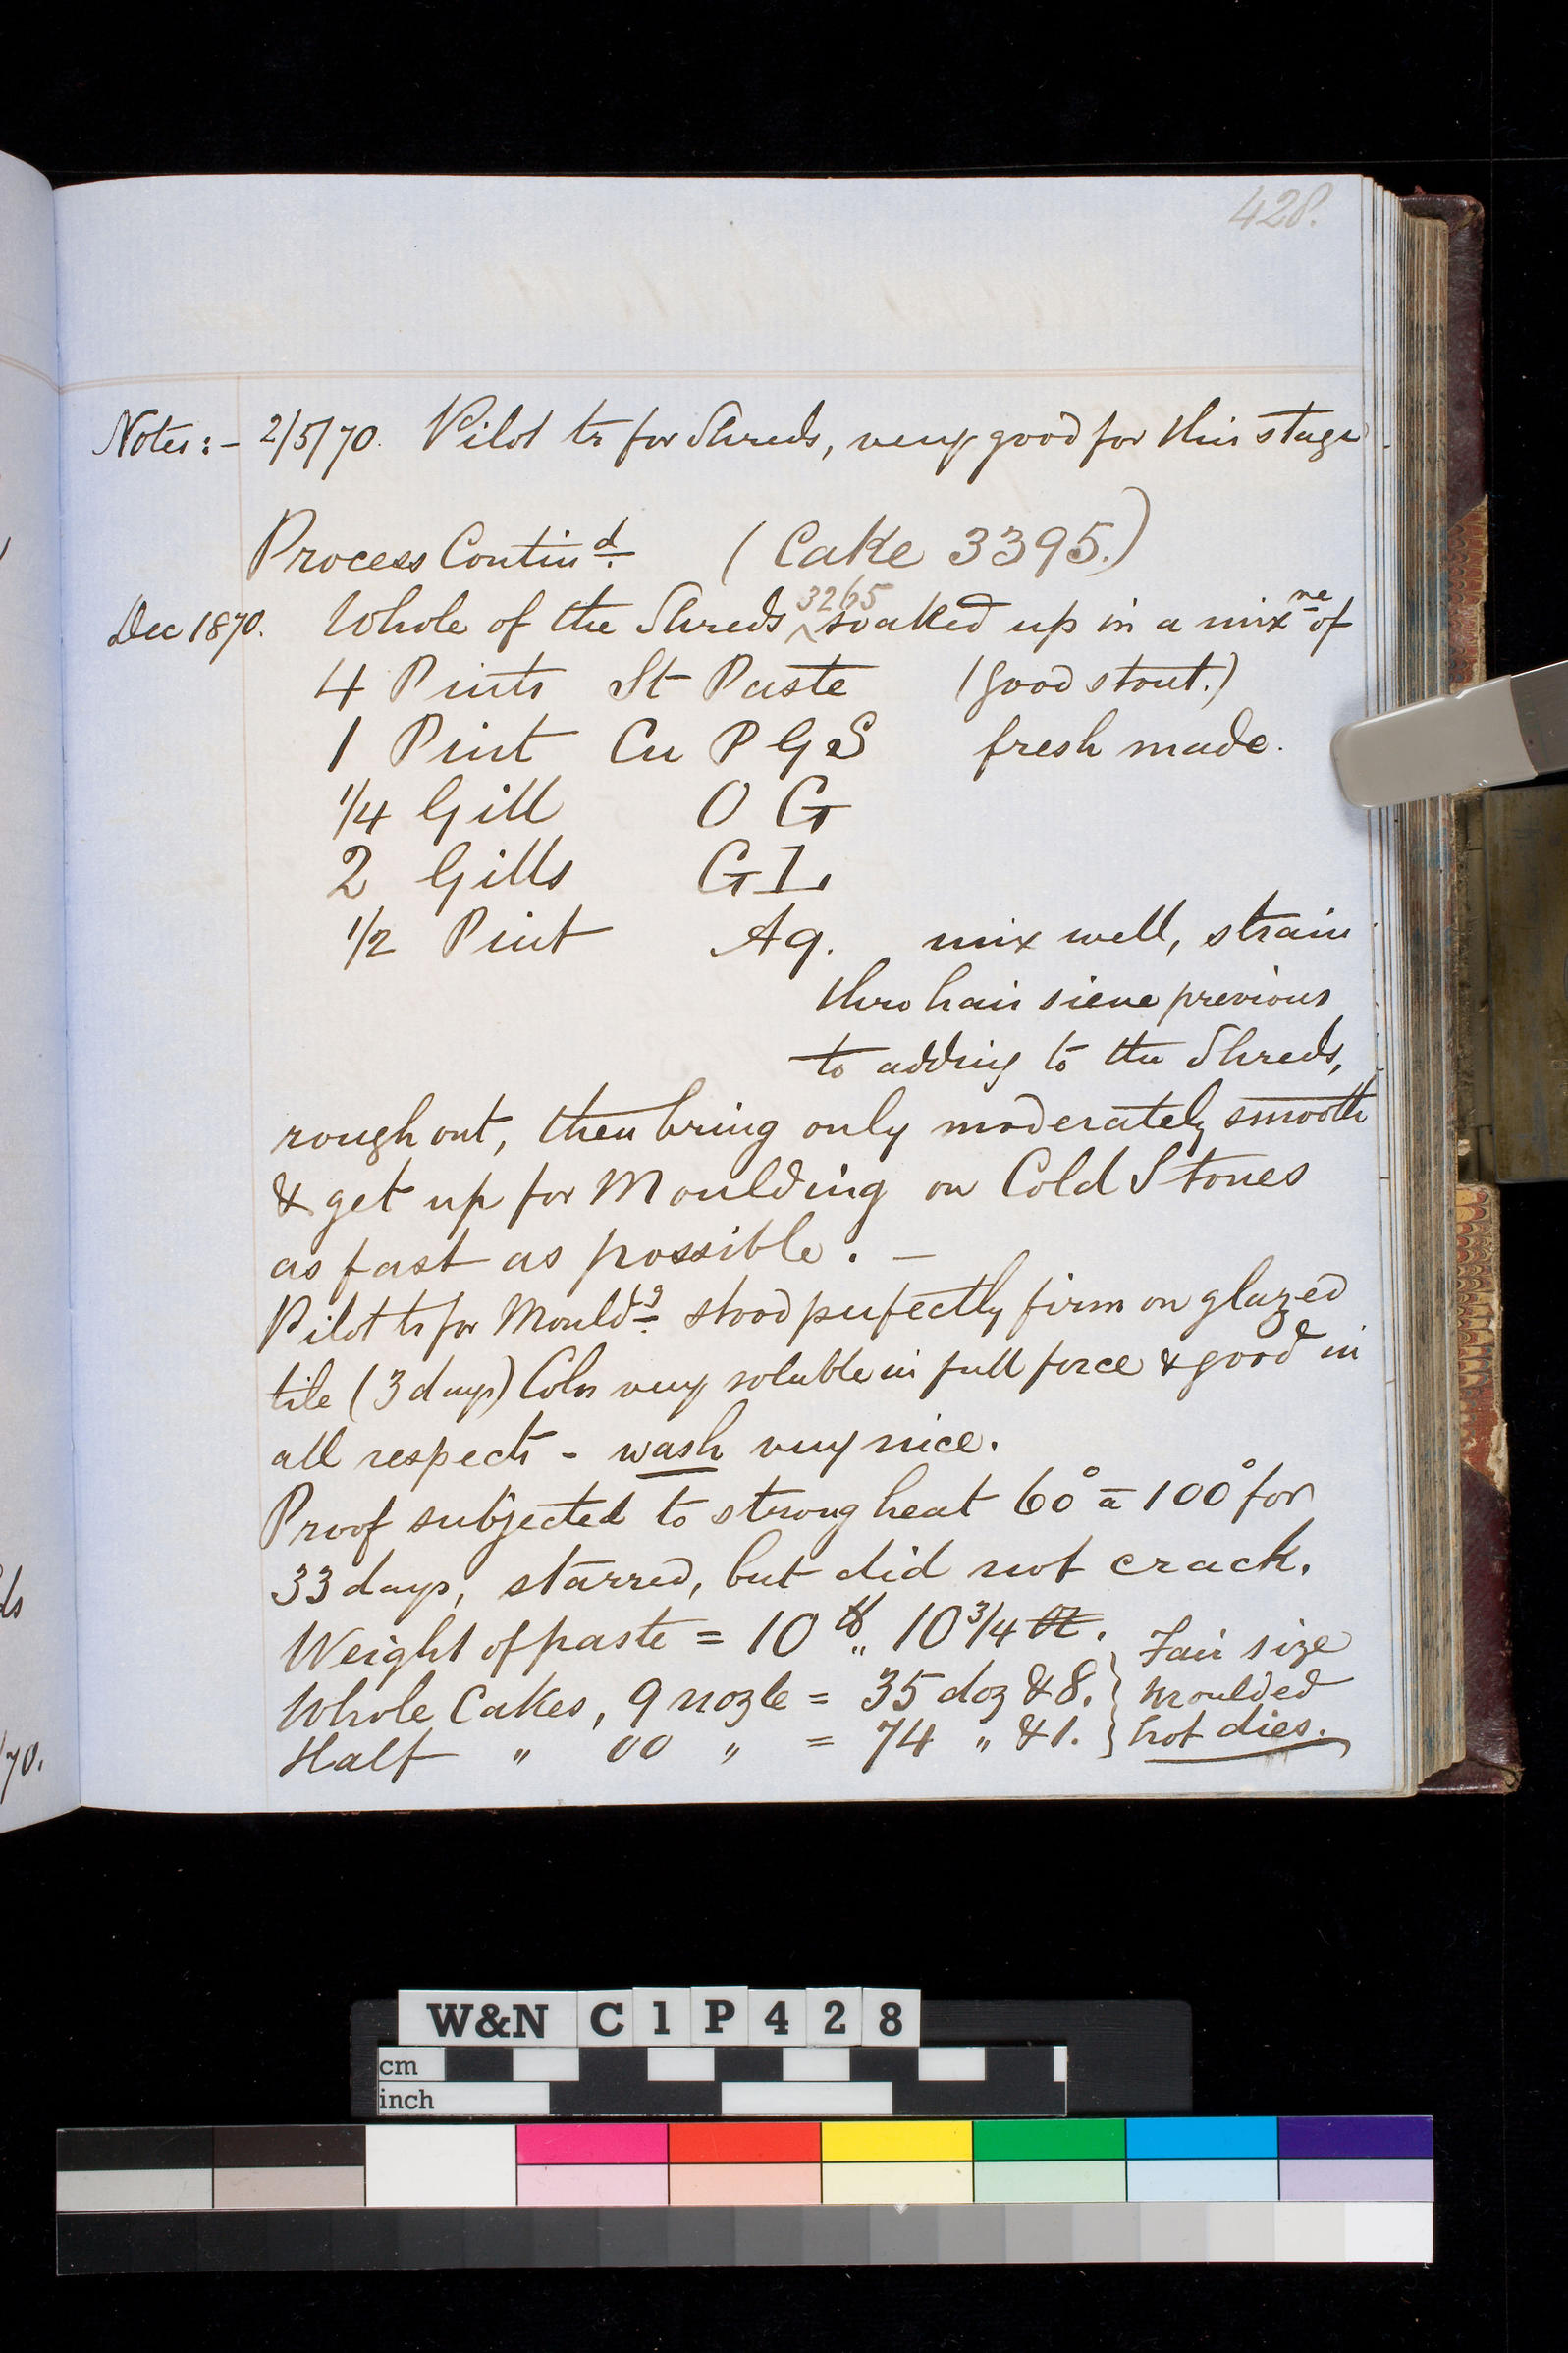 428.
Notes:- 2/5/70. Pilot tr for Shreds, very good for this stage
Process Contind. (Cake 3395.)
Dec 1870. Whole of the Shreds 3265 soaked up in a mixre of
4 Pints St Paste (good stout.)
1 Pint Cu P G S fresh made.
1/4 Gill O G
2 Gills G L
1/2 Pint Aq. mix well, strain
thro hair sieve previous
to adding to the Shreds,
rough out, then bring only moderately smooth
& get up for Moulding on Cold Stones
as fast as possible. —
Pilot tr for Mouldg. stood perfectly firm on glazed
tile (3 days) Color very soluble in full force & good in
all respects - wash very nice.
Proof subjected to strong heat 60° a 100° for
33 days, starred, but did not crack.
Weight of paste = 10 lb ,, 10 3/4
Whole Cakes, 9 nozle = 35 doz & 8. } Fair size
Half " 00 " = 74 " & 1. } moulded
hot dies.
ds
70.
W&N C1P428
cm
inch